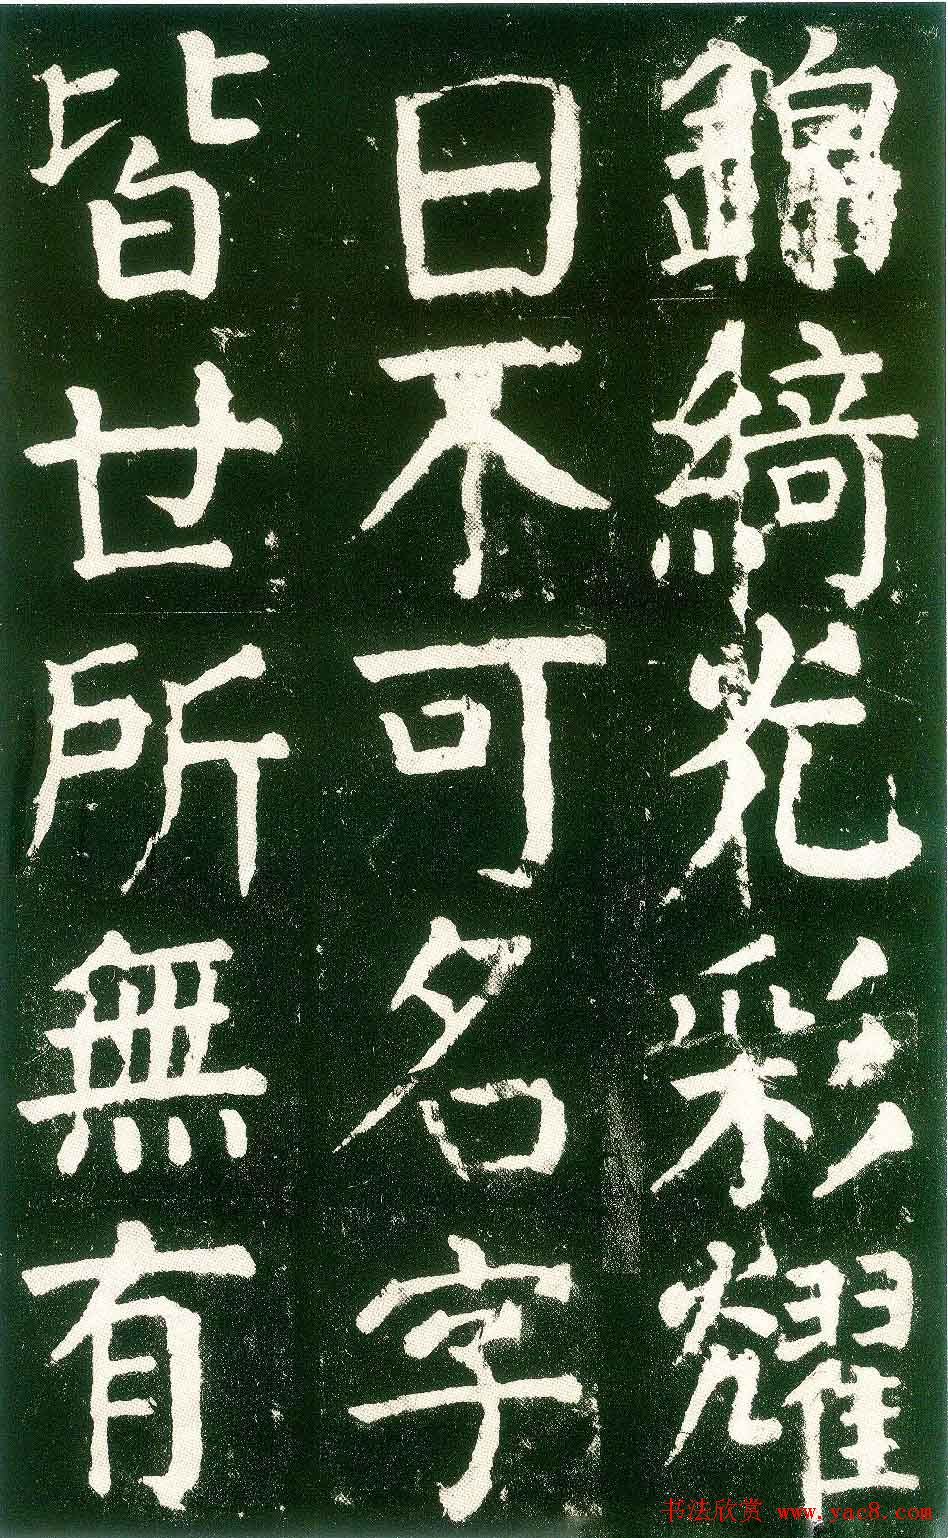 錦綺光彩耀
日不可名字
皆世所無有
书法欣赏 www.yac8.com